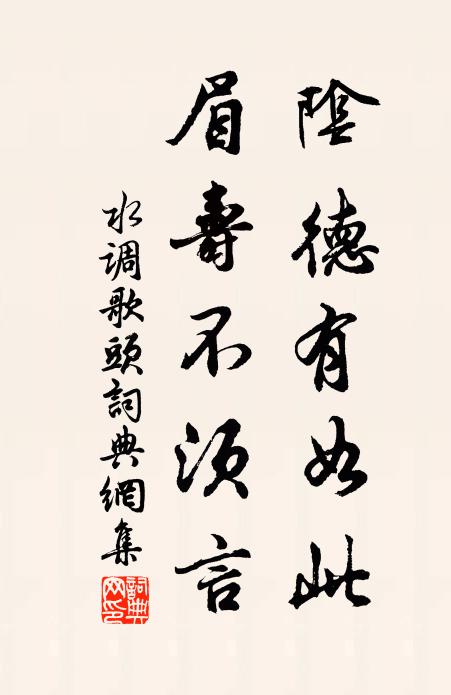 陰德有如此
眉壽不須言
水调歌頭詞典網集
詞典网印